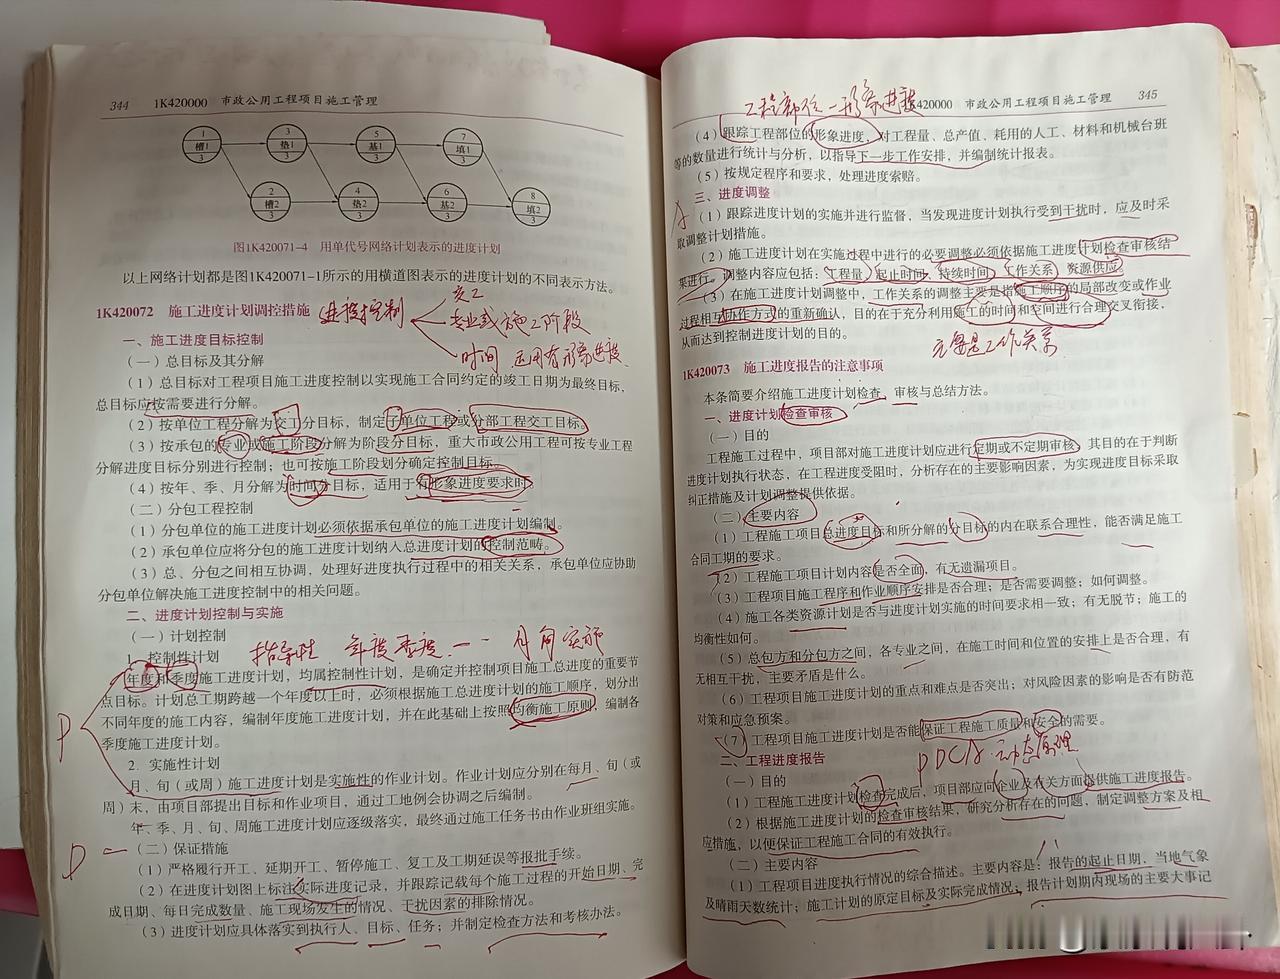 344 1K420000 市政公用工程项目施工管理
1 槽1 3
3 垫1 3
5 基1 3
7 填1 3
2 槽2 3
4 垫2 3
6 基2 3
8 填2 3
图1K420071-4 用单代号网络计划表示的进度计划
以上网络计划都是图1K420071-1所示的用横道图表示的进度计划的不同表示方法。
1K420072 施工进度计划调控措施
进度控制
交工
专业或施工阶段
时间 运用有形象进度
一、施工进度目标控制
（一）总目标及其分解
（1）总目标对工程项目施工进度控制以实现施工合同约定的竣工日期为最终目标，
总目标应按需要进行分解。
（2）按单位工程分解为交工分目标，制定子单位工程或分部工程交工目标。
（3）按承包的专业或施工阶段分解为阶段分目标，重大市政公用工程可按专业工程
分解进度目标分别进行控制；也可按施工阶段划分确定控制目标。
（4）按年、季、月分解为时间分目标，适用于有形象进度要求时。
（二）分包工程控制
（1）分包单位的施工进度计划必须依据承包单位的施工进度计划编制。
（2）承包单位应将分包的施工进度计划纳入总进度计划的控制范畴。
（3）总、分包之间相互协调，处理好进度执行过程中的相关关系，承包单位应协助
分包单位解决施工进度控制中的相关问题。
二、进度计划控制与实施
（一）计划控制
1. 控制性计划
指导性 年度季度 一 月旬实施
年度和季度施工进度计划，均属控制性计划，是确定并控制项目施工总进度的重要节
点目标。计划总工期跨越一个年度以上时，必须根据施工总进度计划的施工顺序，划分出
不同年度的施工内容，编制年度施工进度计划，并在此基础上按照均衡施工原则，编制各
季度施工进度计划。
P
2. 实施性计划
月、旬（或周）施工进度计划是实施性的作业计划。作业计划应分别在每月、旬（或
周）末，由项目部提出目标和作业项目，通过工地例会协调之后编制。
年、季、月、旬、周施工进度计划应逐级落实，最终通过施工任务书由作业班组实施。
D
（二）保证措施
（1）严格履行开工、延期开工、暂停施工、复工及工期延误等报批手续。
（2）在进度计划图上标注实际进度记录，并跟踪记载每个施工过程的开始日期、完
成日期、每日完成数量、施工现场发生的情况、干扰因素的排除情况。
（3）进度计划应具体落实到执行人、目标、任务；并制定检查方法和考核办法。
工程部位一形象进度
K420000 市政公用工程项目施工管理 345
（4）跟踪工程部位的形象进度，对工程量、总产值，耗用的人工、材料和机械台班
等的数量进行统计与分析，以指导下一步工作安排，并编制统计报表。
（5）按规定程序和要求，处理进度索赔。
三、进度调整
A
（1）跟踪进度计划的实施并进行监督，当发现进度计划执行受到干扰时，应及时采
取调整计划措施。
（2）施工进度计划在实施过程中进行的必要调整必须依据施工进度计划检查审核结
果进行。调整内容应包括：工程量、起止时间、持续时间、工作关系、资源供应。
（3）在施工进度计划调整中，工作关系的调整主要是指施工顺序的局部改变或作业
过程相互协作方式的重新确认，目的在于充分利用施工的时间和空间进行合理交叉衔接，
从而达到控制进度计划的目的。
主要是工作关系
1K420073 施工进度报告的注意事项
本条简要介绍施工进度计划检查、审核与总结方法。
一、进度计划检查审核
（一）目的
工程施工过程中，项目部对施工进度计划应进行定期或不定期审核。其目的在于判断
进度计划执行状态，在工程进度受阻时，分析存在的主要影响因素，为实现进度目标采取
纠正措施及计划调整提供依据。
（二）主要内容
（1）工程施工项目总进度目标和所分解的分目标的内在联系合理性，能否满足施工
合同工期的要求。
（2）工程施工项目计划内容是否全面，有无遗漏项目。
（3）工程项目施工程序和作业顺序安排是否合理；是否需要调整；如何调整。
（4）施工各类资源计划是否与进度计划实施的时间要求相一致；有无脱节；施工的
均衡性如何。
（5）总包方和分包方之间，各专业之间，在施工时间和位置的安排上是否合理，有
无相互干扰，主要矛盾是什么。
（6）工程项目施工进度计划的重点和难点是否突出；对风险因素的影响是否有防范
对策和应急预案。
（7）工程项目施工进度计划是否能保证工程施工质量和安全的需要。
PDCA动态原理
二、工程进度报告
（一）目的
（1）工程施工进度计划检查完成后，项目部应向企业及有关方面提供施工进度报告。
（2）根据施工进度计划的检查审核结果，研究分析存在的问题，制定调整方案及相
应措施，以便保证工程施工合同的有效执行。
（二）主要内容
（1）工程项目进度执行情况的综合描述。主要内容是：报告的起止日期，当地气象
及晴雨天数统计；施工计划的原定目标及实际完成情况；报告计划期内现场的主要大事记